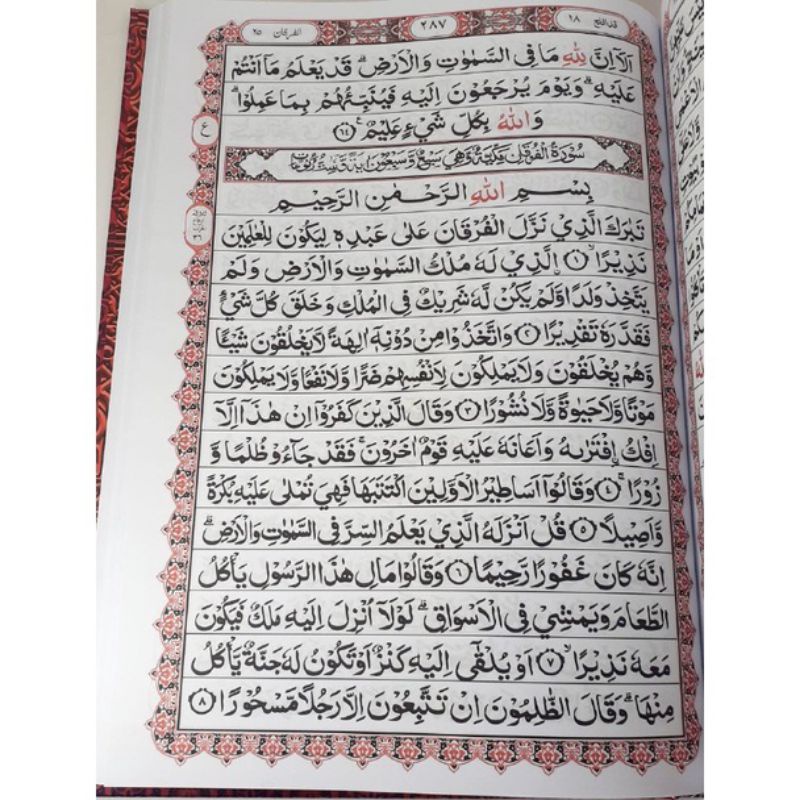 قد افلح ١٨
٢٨٧
الفرقان ٢٥
اَلَاۤ اِنَّ لِلّٰهِ مَا فِی السَّمٰوٰتِ وَالْاَرْضِ ؕ قَدْ يَعْلَمُ مَاۤ اَنْتُمْ
عَلَيْهِ ؕ وَيَوْمَ يُرْجَعُوْنَ اِلَيْهِ فَيُنَبِّئُهُمْ بِمَا عَمِلُوْا ؕ
وَاللّٰهُ بِكُلِّ شَیْءٍ عَلِيْمٌ ﴿٦٤﴾
ع
سُوْرَةُ الْفُرْقَانِ مَكِّيَّةٌ وَّهِيَ سَبْعٌ وَّسَبْعُوْنَ اٰيَةً وَّسِتُّ رُكُوْعَاتٍ
بِسْمِ اللّٰهِ الرَّحْمٰنِ الرَّحِيْمِ
تَبٰرَكَ الَّذِيْ نَزَّلَ الْفُرْقَانَ عَلٰى عَبْدِهٖ لِيَكُوْنَ لِلْعٰلَمِيْنَ
نَذِيْرًا ﴿١﴾ الَّذِيْ لَهٗ مُلْكُ السَّمٰوٰتِ وَالْاَرْضِ وَلَمْ
يَتَّخِذْ وَلَدًا وَّلَمْ يَكُنْ لَّهٗ شَرِيْكٌ فِی الْمُلْكِ وَخَلَقَ كُلَّ شَیْءٍ
فَقَدَّرَهٗ تَقْدِيْرًا ﴿٢﴾ وَاتَّخَذُوْا مِنْ دُوْنِهٖۤ اٰلِهَةً لَّا يَخْلُقُوْنَ شَيْئًا
وَّهُمْ يُخْلَقُوْنَ وَلَا يَمْلِكُوْنَ لِاَنْفُسِهِمْ ضَرًّا وَّلَا نَفْعًا وَّلَا يَمْلِكُوْنَ
مَوْتًا وَّلَا حَيٰوةً وَّلَا نُشُوْرًا ﴿٣﴾ وَقَالَ الَّذِيْنَ كَفَرُوْۤا اِنْ هٰذَاۤ اِلَّاۤ
اِفْكُ اِۨفْتَرٰىهُ وَاَعَانَهٗ عَلَيْهِ قَوْمٌ اٰخَرُوْنَ ۚ فَقَدْ جَآءُوْ ظُلْمًا وَّ
زُوْرًا ﴿٤﴾ وَقَالُوْۤا اَسَاطِيْرُ الْاَوَّلِيْنَ اكْتَتَبَهَا فَهِيَ تُمْلٰى عَلَيْهِ بُكْرَةً
وَّاَصِيْلًا ﴿٥﴾ قُلْ اَنْزَلَهُ الَّذِيْ يَعْلَمُ السِّرَّ فِی السَّمٰوٰتِ وَالْاَرْضِ ؕ
اِنَّهٗ كَانَ غَفُوْرًا رَّحِيْمًا ﴿٦﴾ وَقَالُوْا مَالِ هٰذَا الرَّسُوْلِ يَاْكُلُ
الطَّعَامَ وَيَمْشِيْ فِی الْاَسْوَاقِ ؕ لَوْلَاۤ اُنْزِلَ اِلَيْهِ مَلَكٌ فَيَكُوْنَ
مَعَهٗ نَذِيْرًا ﴿٧﴾ اَوْ يُلْقٰۤى اِلَيْهِ كَنْزٌ اَوْ تَكُوْنُ لَهٗ جَنَّةٌ يَّاْكُلُ
مِنْهَا ؕ وَقَالَ الظّٰلِمُوْنَ اِنْ تَتَّبِعُوْنَ اِلَّا رَجُلًا مَّسْحُوْرًا ﴿٨﴾